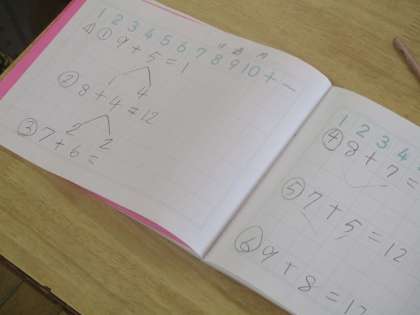 1 2 3 4 5 6 7 8 9 10 + -
① 9 + 5 = 1
1 4
② 8 + 4 = 12
2 2
③ 7 + 6 =
1 2 3 4
④ 8 + 7 =
⑤ 7 + 5 = 12
⑥ 9 + 8 = 17